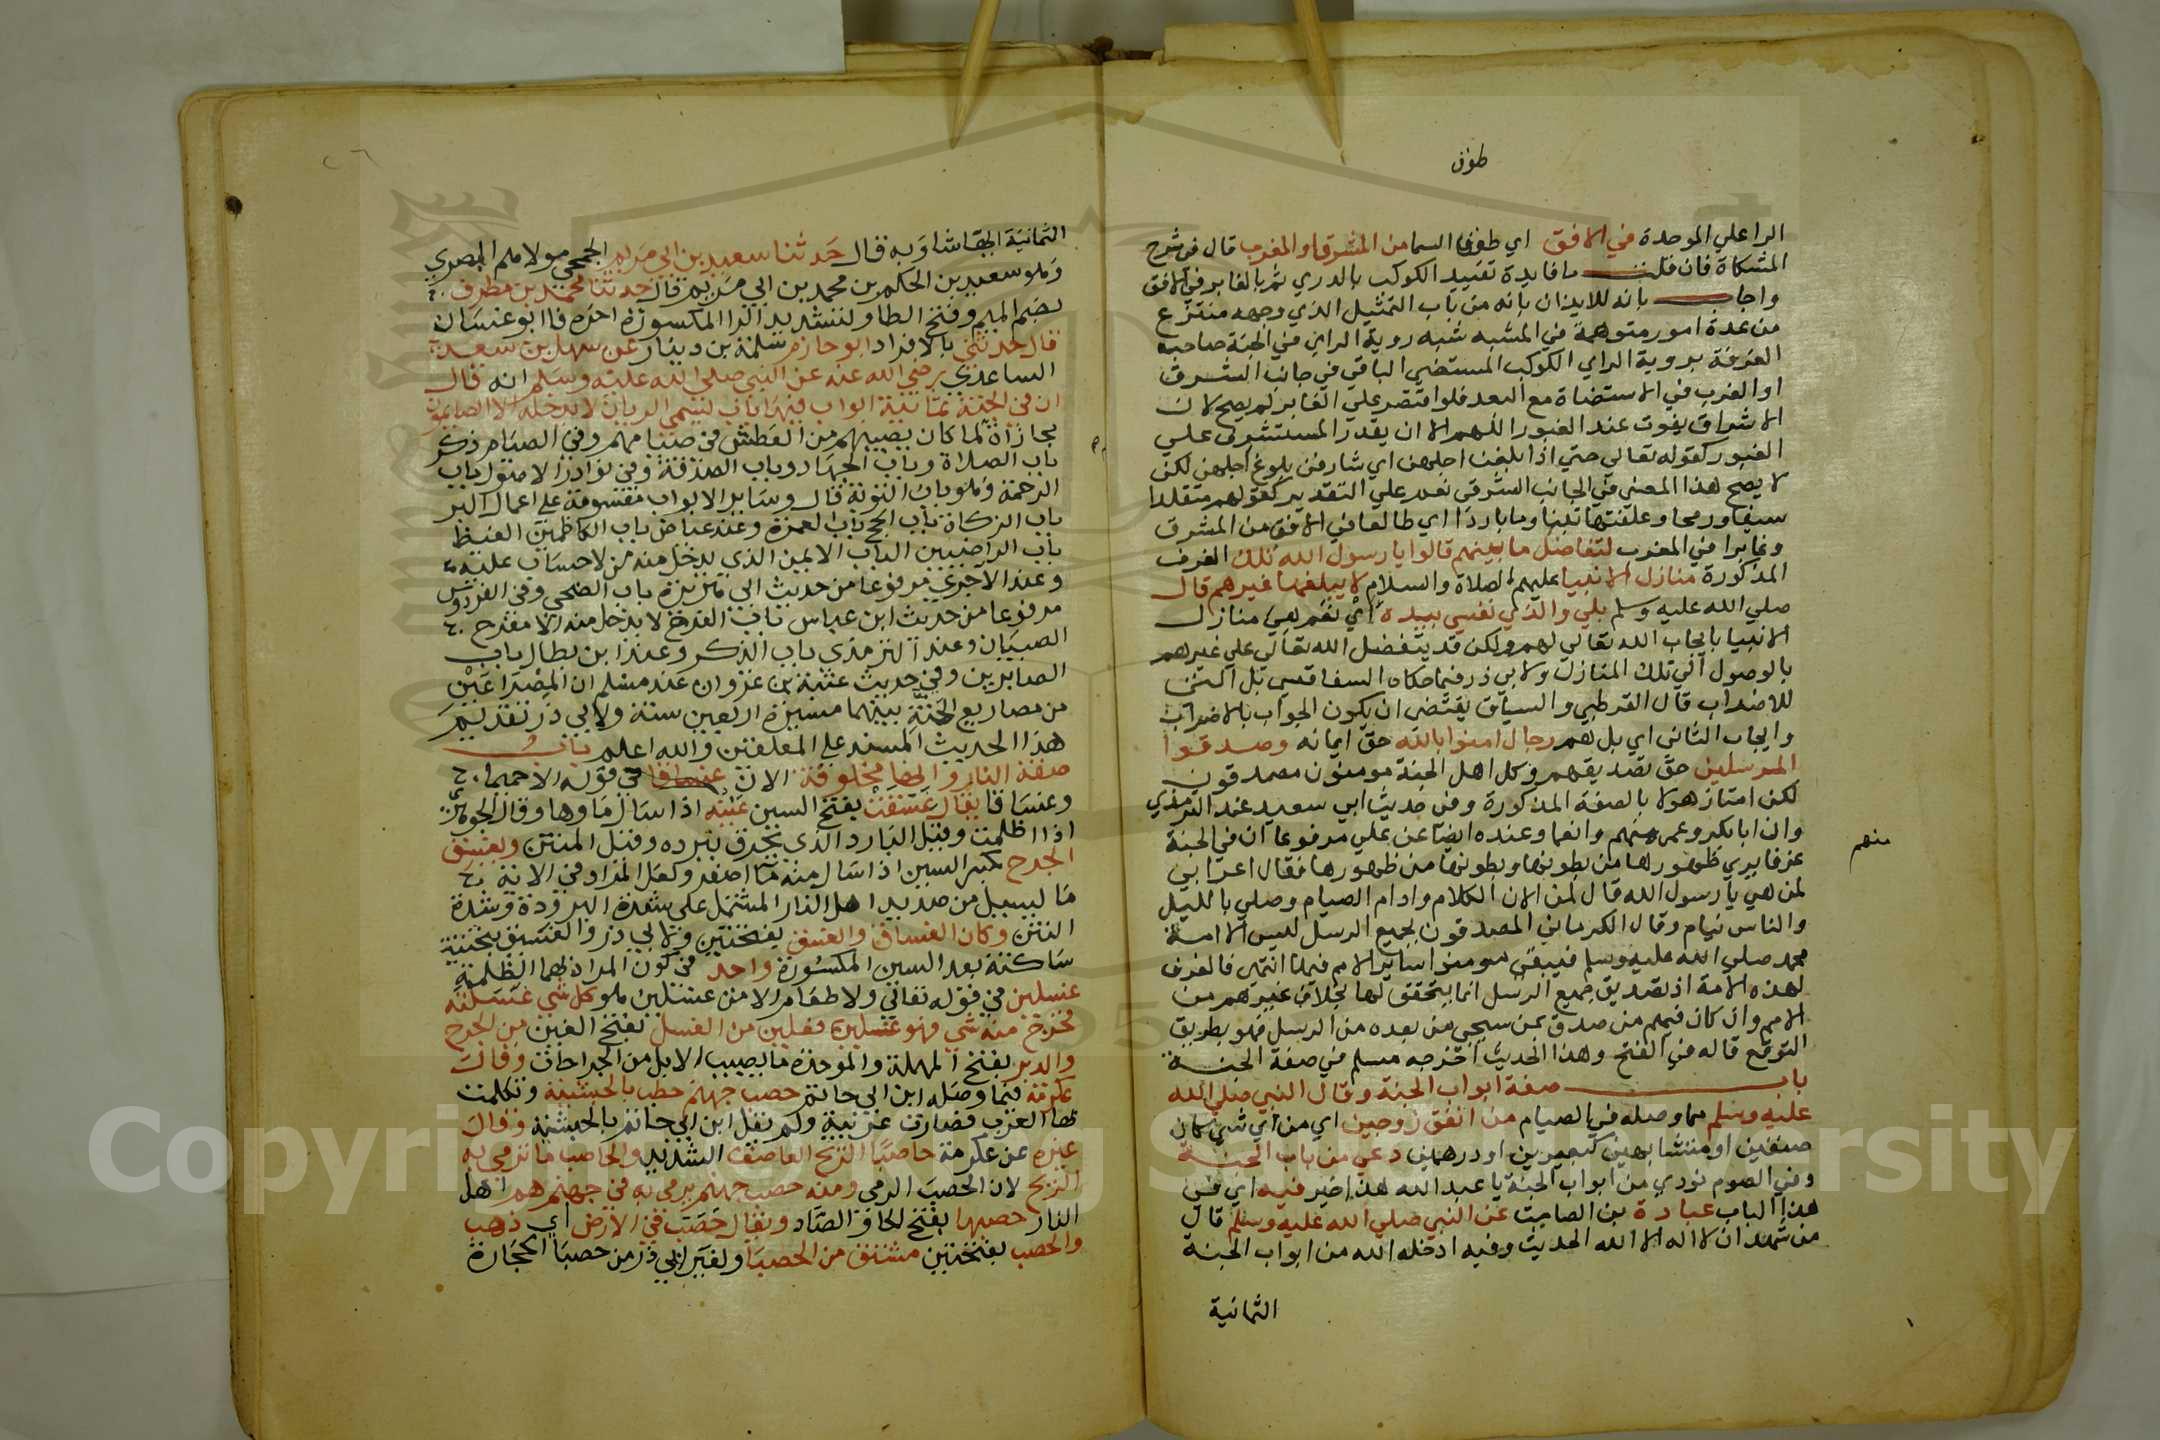 طوق
الرا على الموحدة في الافق اي طرف السما من المشرق او المغرب قال في شرح
المشكاة فان قلت ما فايدة تقييد الكوكب بالدري ثم بالغابر في الافق
واجاب بانه للايذان بانه من باب التمثيل الذي وجهه منتزع
من عدة امور متوهمة في المشبه شبه روية الراي في الجنة صاحب
الغرفة بروية الراي الكوكب المستضي الباقي في جانب الشرق
او الغرب في الاستضاة مع البعد فلو اقتصر على الغابر لم يصح لان
الاشراق يفوت عند الغبور اللهم الا ان يقدر المستشرف على
الغبور كقوله تعالي حتي اذا بلغن اجلهن اي شارفن بلوغ اجلهن لكن
لا يصح هذا المعنى في الجانب الشرقي نعم علي التقدير كقولهم متقلدا
سيفا ورمحا وعلفتها تبنا وما باردا اي طالعا في الافق من المشرق
وغابرا في المغرب لتفاضل ما بينهم قالوا يا رسول الله تلك الغرف
المذكورة منازل الانبيا عليهم الصلاة والسلام لا يبلغها غيرهم قال
صلي الله عليه وسلم بلي والذي نفسي بيده اي نعم هي منازل
الانبيا بايجاب الله تعالي لهم ولكن قد يتفضل الله تعالي علي غيرهم
بالوصول الي تلك المنازل ولابي ذر فيما حكاه السفاقسي بل التي
للاضراب قال القرطبي والسياق يقتضي ان يكون الجواب بالاضراب
وايجاب الثاني اي بل هم رجال امنوا بالله حق ايمانه وصدقوا
المرسلين حق تصديقهم وكل اهل الجنة مومنون مصدقون
لكن امتاز هولا بالصفة المذكورة وفي حديث ابي سعيد عند الترمذي
وان ابا بكر وعمر منهم وانعما وعنده ايضا عن علي مرفوعا ان في الجنة
غرفا يري ظهورها من بطونها وبطونها من ظهورها فقال اعرابي
لمن هي يا رسول الله قال لمن الان الكلام وادام الصيام وصلي بالليل
والناس نيام وقال الكرماني المصدقون بجميع الرسل ليس الا امة
محمد صلي الله عليه وسلم فيبقى مومنو اساير الامم فيها انتهي فالغرف
لهذه الامة اذ تصديق جميع الرسل انما يتحقق لها بخلاف غيرهم من
الامم وان كان فيهم من صدق بمن سيجي من بعده من الرسل فهو بطريق
التوقع قاله في الفتح وهذا الحديث اخرجه مسلم في صفة الجنة
باب صفة ابواب الجنة وقال النبي صلي الله
عليه وسلم مما وصله في الصيام من انفق زوجين اي من اي شي كان
صنفين او متشابهين كبعيرين او درهمين دعي من باب الجنة
وفي الصوم نودي من ابواب الجنة يا عبد الله هذا خير فيه اي في
هذا الباب عبادة بن الصامت عن النبي صلي الله عليه وسلم قال
من شهد ان لا اله الا الله الحديث وفيه ادخله الله من ابواب الجنة
الثمانية
منهم
الثمانية ايها شا وبه قال حدثنا سعيد بن ابي مريم الجمحي مولاهم المصري
وهو سعيد بن الحكم بن محمد بن ابي مريم قال حدثنا محمد بن مطرف
بضم الميم وفتح الطا وتشديد الرا المكسورة اخره فا ابو غسان
قال حدثني بالافراد ابو حازم سلمة بن دينار عن سهل بن سعد
الساعدي رضي الله عنه عن النبي صلي الله عليه وسلم انه قال
ان في الجنة ثمانية ابواب فيها باب يسمي الريان لا يدخله الا الصايمون
مجازاة لما كان يصيبهم من العطش في صيامهم وفي الصيام ذكر
باب الصلاة وباب الجهاد وباب الصدقة وفي نوادر الاصول باب
الرحمة وهو باب التوبة قال وساير الابواب مقسومة علي اعمال البر
باب الزكاة باب الحج باب العمرة وعند عياض باب الكاظمين الغيظ
باب الراضيين الباب الايمن الذي يدخل منه من لا حساب عليه
وعند الآجري مرفوعا من حديث ابي هريرة باب الضحي وفي الفردوس
مرفوعا من حديث ابن عباس باب الفرح لا يدخل منه الا مفرح
الصبيان وعند الترمذي باب الذكر وعند ابن بطال باب
الصابرين وفي حديث عتبة بن غزوان عند مسلم ان المصراعين
من مصاريع الجنة بينهما مسيرة اربعين سنة ولابي ذر تقديم
هذا الحديث المسند علي المعلقين والله اعلم باب
صفة النار وانها مخلوقة الان غساقا في قوله الا حميما
وغساقا يقال غسقت بفتح السين عينه اذا سال ماوها وقال الجوهري
اذا اظلمت وقيل البارد الذي يحرق ببرده وقيل المنتن ويغسق
الجرح بكسر السين اذا سال منه ما اصفر ولعل المراد في الاية
ما يسيل من صديد اهل النار المشتمل علي شدة البرودة وشدة
النتن وكان الغساق والغسق بفتحتين ولابي ذر والغسيق بتحتية
ساكنة بعد السين المكسورة واحد في كون المراد بهما الظلمة
غسلين في قوله تعالي ولا طعام الا من غسلين هو كل شي غسلته
فخرج منه شي فهو غسلين فعلين من الغسل بفتح الغين من الجرح
والدبر بفتح المهملة والموحدة ما يصيب الابل من الجراحات وقال
عكرمة فيما وصله ابن ابي حاتم حصب جهنم حطب بالحبشية وتكلمت
بها العرب فصارت عربية ولم يقل ابن ابي حاتم بالحبشية وقال
غيره عن عكرمة حاصبا الريح العاصف الشديد والحاصب ما ترمي به
الريح لان الحصب الرمي ومنه حصب جهنم يرمي به في جهنم هم اهل
النار حصبها بفتح الحا والصاد ويقال حصب في الارض اي ذهب
والحصب بفتحتين مشتق من الحصبا ولغير ابي ذر من حصبا الحجارة